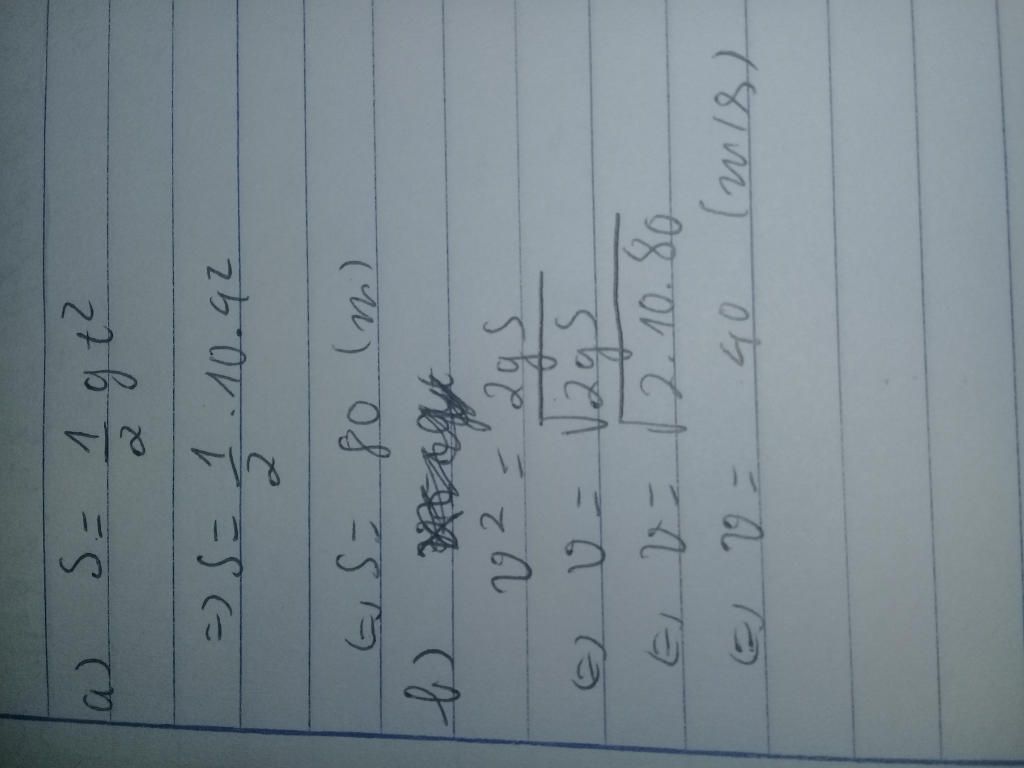 a) S = 1/2 g t²
=> S = 1/2 . 10 . 4²
<=> S = 80 (m)
b)
v² = 2gS
<=> v = √2gS
<=> v = √2.10.80
<=> v = 40 (m/s)